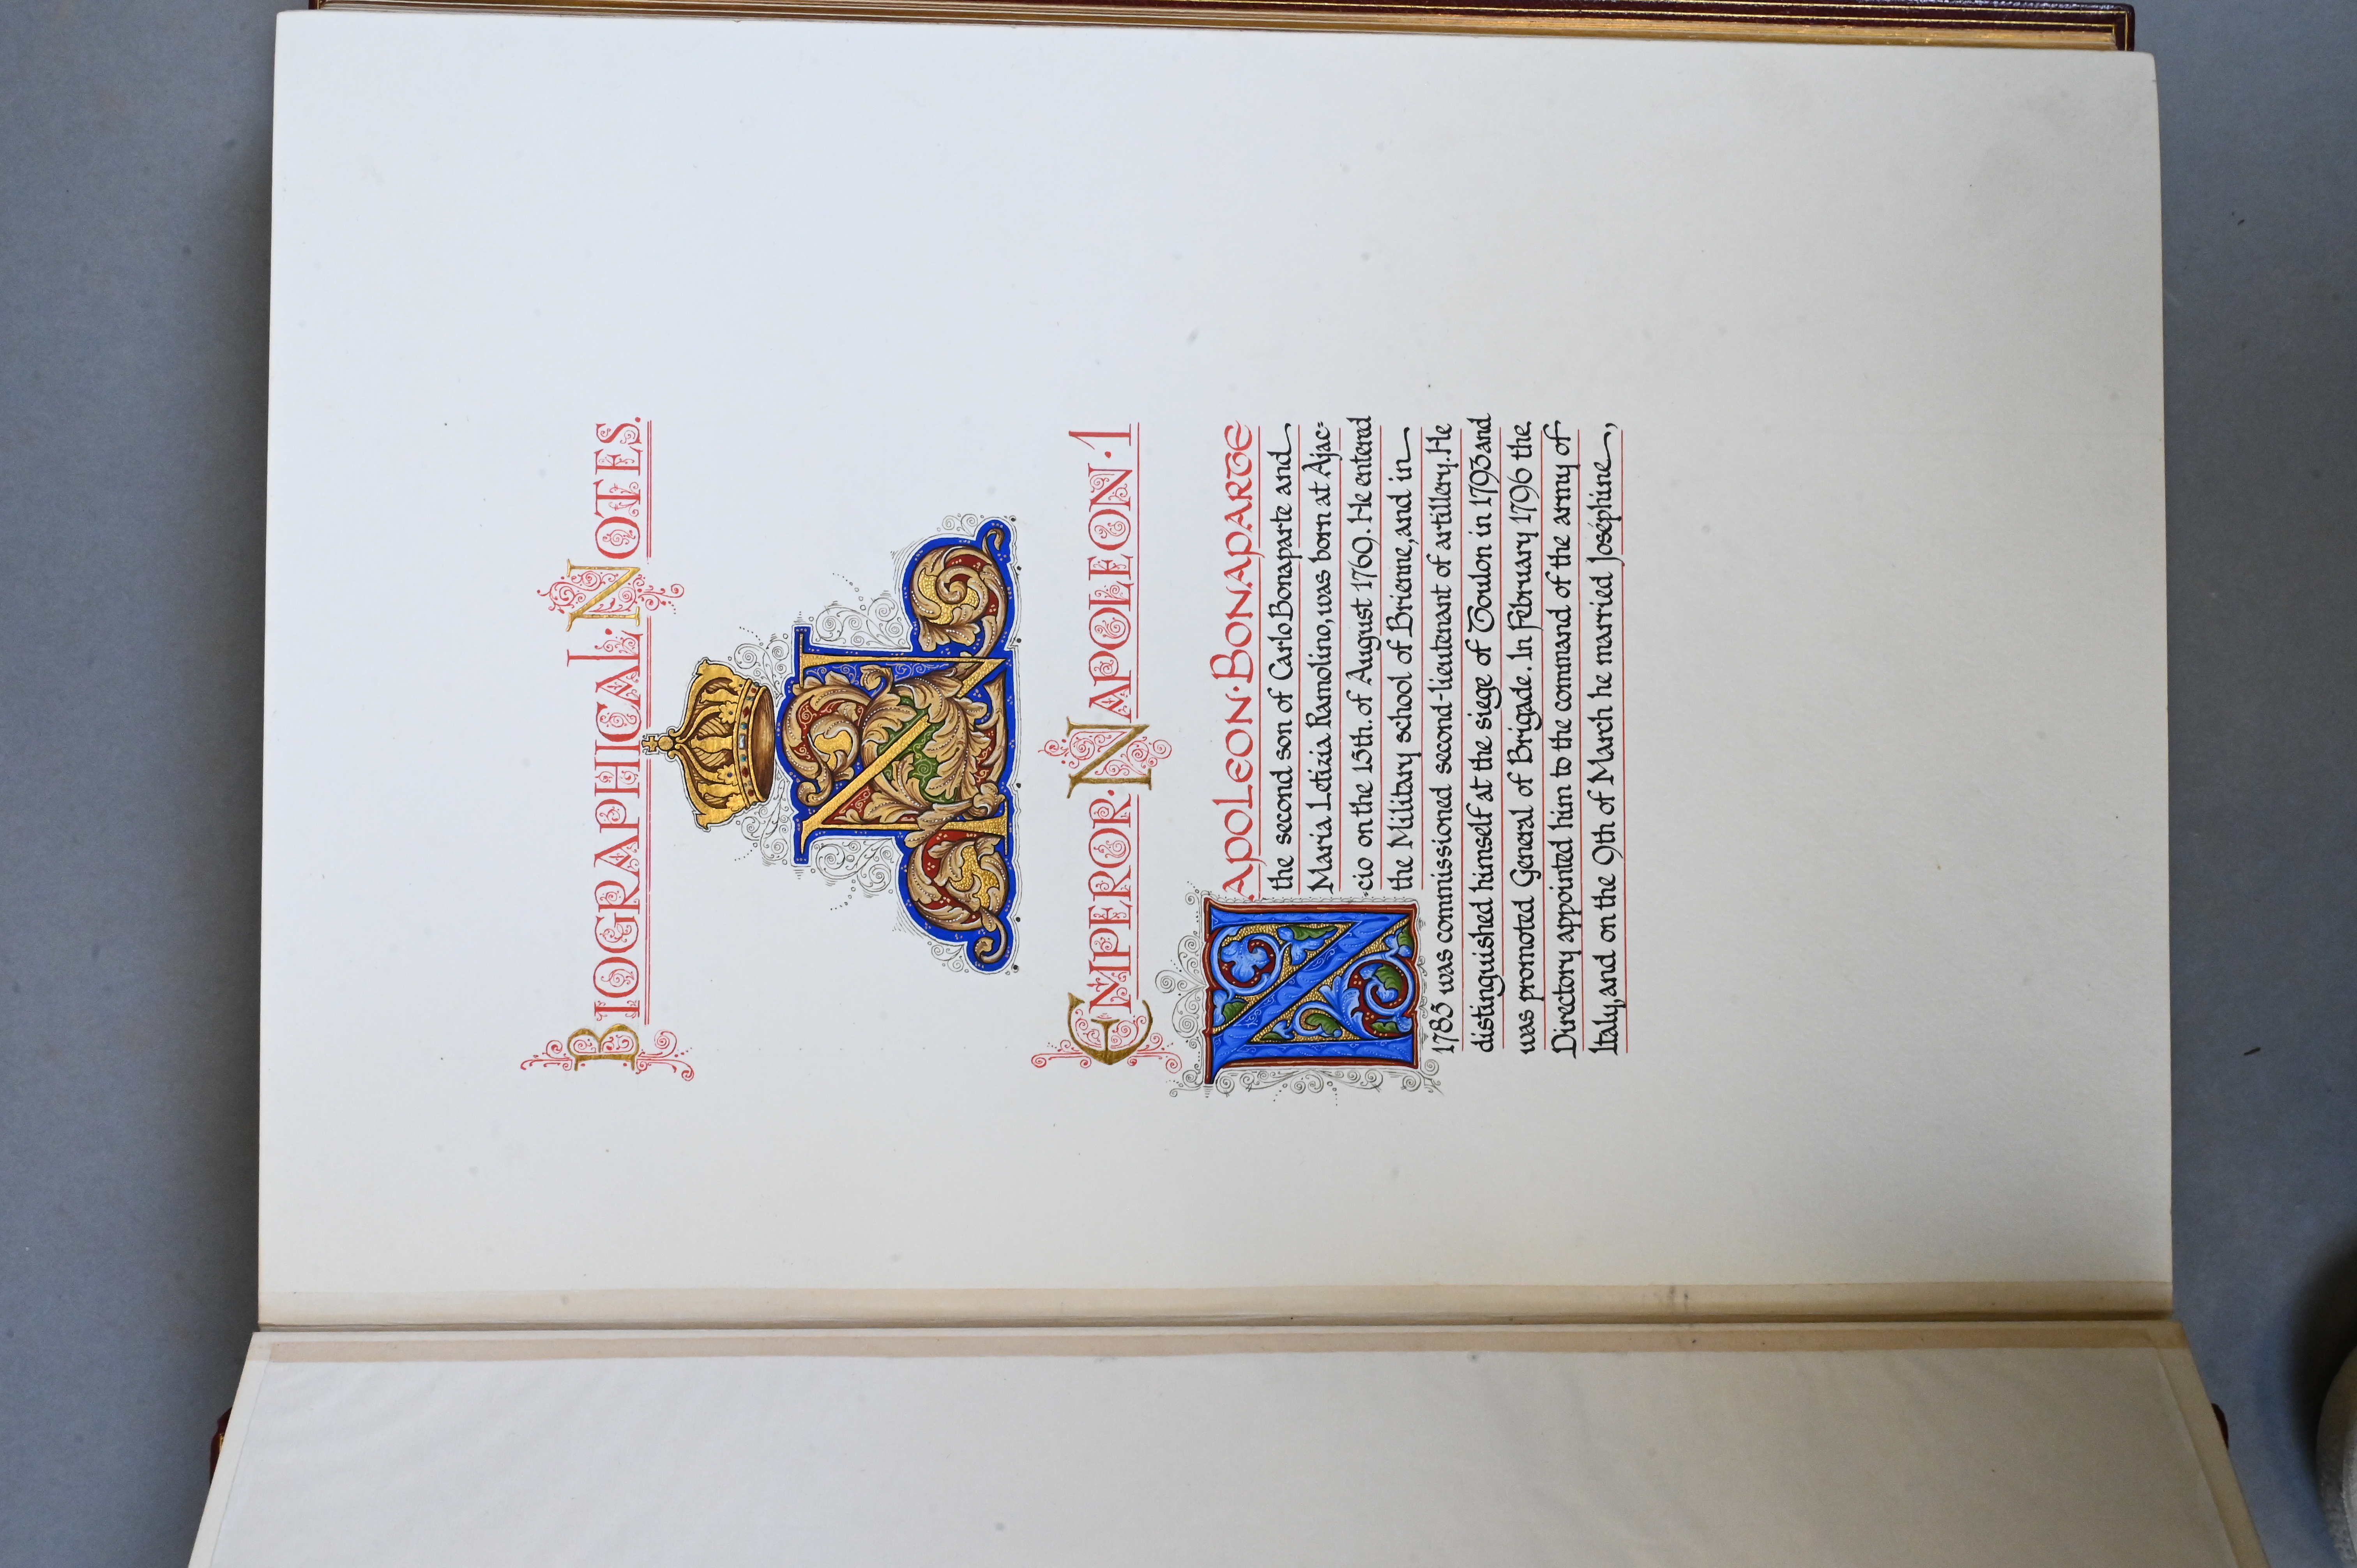 BIOGRAPHICAL·NOTES.
N
EMPEROR·NAPOLEON·1
NAPOLEON·BONAPARTE
the second son of Carlo Bonaparte and
Maria Letizia Ramolino, was born at Ajac=
·cio on the 15th. of August 1769. He entered
the Military school of Brienne, and in
1785 was commissioned second-lieutenant of artillery. He
distinguished himself at the siege of Toulon in 1793 and
was promoted General of Brigade. In February 1796 the
Directory appointed him to the command of the army of
Italy, and on the 9th of March he married Joséphine,